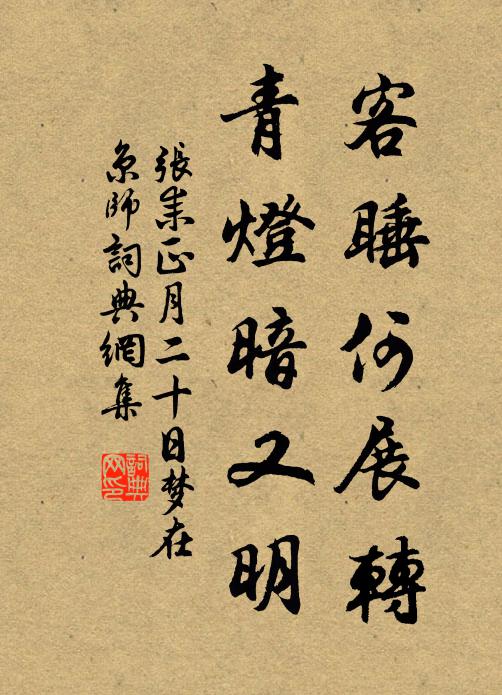 客睡何展轉
青燈暗又明
張耒正月二十日梦在
京師詞典網集
詞典网印